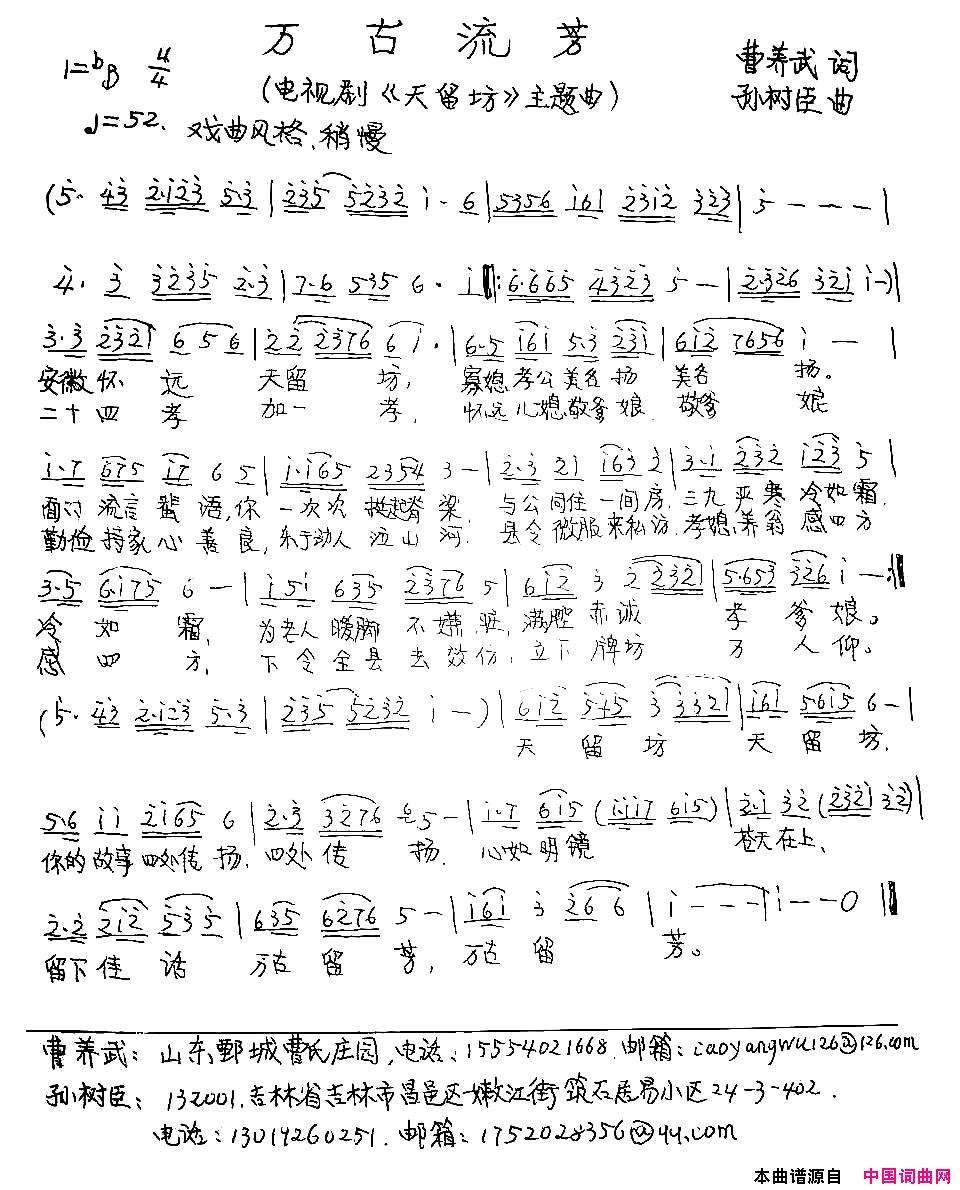 万古流芳
1=bB 4/4
(电视剧《天留坊》主题曲)
曹养武 词
孙树臣 曲
♩=52. 戏曲风格、稍慢
(5· 43 2·123 5·3 | 235 5232 1· 6 | 5356 161 2312 323 | 5 - - - |
4· 3 3235 2·3 | 7·6 535 6· 1 ‖: 6·665 4323 5 - | 2·326 321 1 -) |
3·3 2321 6 5 6 | 22 2376 6 1· | 6·5 161 5·3 231 | 612 7656 1 - |
安徽怀远 天留坊, 寡媳孝公美名扬 美名扬。
二十四孝 加一孝, 怀远儿媳敬爹娘 敬爹娘
1·7 675 17 6 5 | 1·165 2354 3 - | 2·3 21 163 2 | 3·1 232 123 5 |
面对流言蜚语,你一次次挺起脊梁, 与公同住一间房, 三九严寒冷如霜.
勤俭持家心善良, 乐于助人泣山河. 县令微服来私访. 孝媳养翁感四方
3·5 6·175 6 - | 1 51 635 2376 5 | 612 3 2 2321 | 5·653 326 1 - :‖
冷如霜, 为老人暖脚不嫌脏, 满腔赤诚孝爹娘。
感四方, 下令全县去效仿, 立下牌坊万人仰。
(5· 43 2·123 5·3 | 235 5232 1 -) | 612 545 3 3321 | 161 5·615 6 - |
天留坊 天留坊.
5·6 11 2165 6 | 2·3 3276 65 - | 1·7 615 (1·117 615) | 2·1 32 (2321 32) |
你的故事四处传扬. 四处传扬. 心如明镜 苍天在上、
2·2 212 535 | 635 6276 5 - | 161 3 26 6 | 1 - - - | 1 - - 0 ‖
留下佳话 万古留芳, 万古留芳。
曹养武: 山东鄄城曹氏庄园,电话:15554021668.邮箱:caoyangwu126@126.com
孙树臣: 132001.吉林省吉林市昌邑区嫩江街筑石居易小区24-3-402.
电话:13019260251. 邮箱:1752028356@qq.com
本曲谱源自 中国词曲网